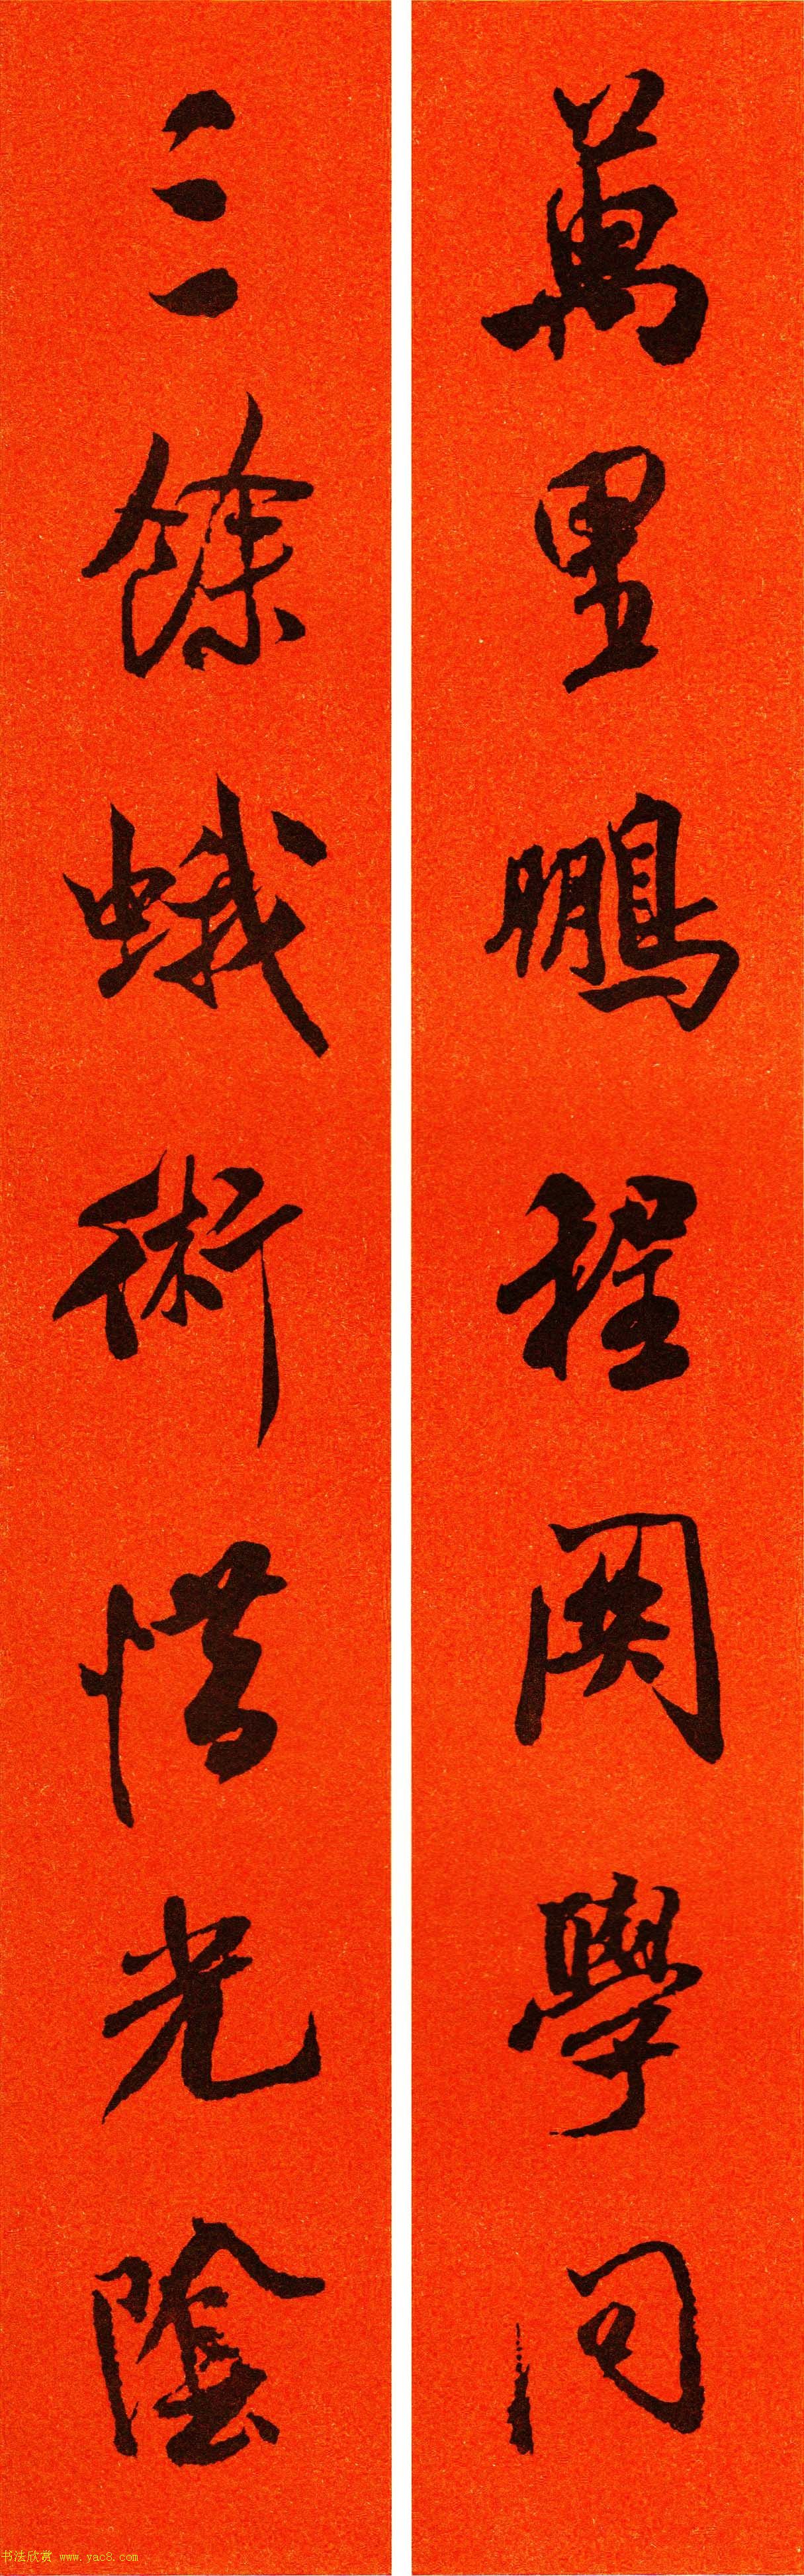 萬里鵬程關學問
三餘蛾術惜光陰
书法欣赏 www.yac8.com